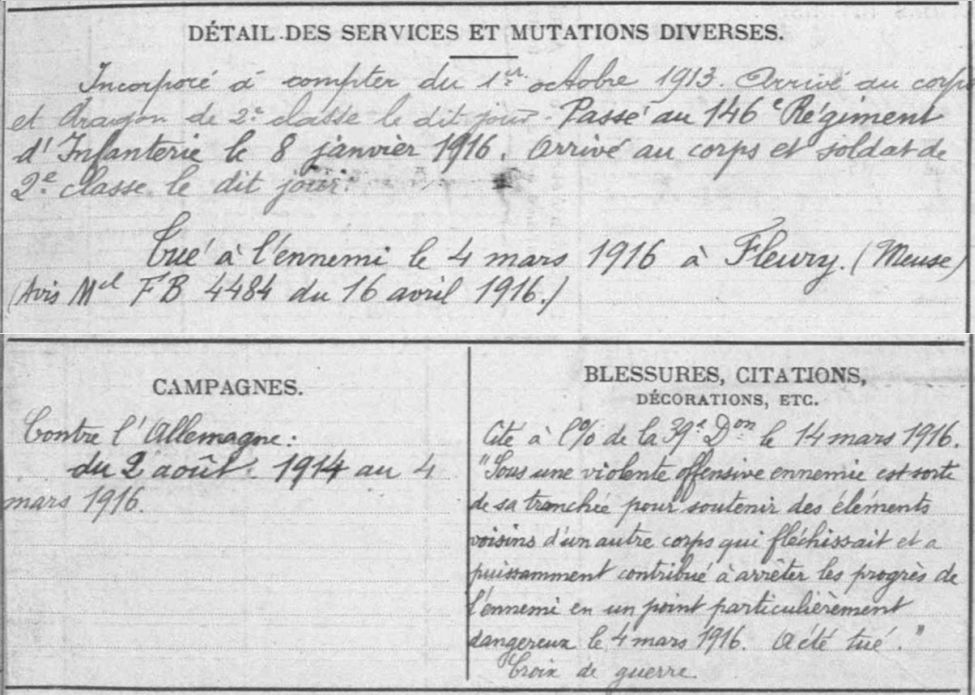 DÉTAIL DES SERVICES ET MUTATIONS DIVERSES.
Incorporé à compter du 1er octobre 1913. Arrivé au corps
et dragon de 2e classe le dit jour. Passé au 146e Régiment
d'Infanterie le 8 janvier 1916. Arrivé au corps et soldat de
2e classe le dit jour.
Tué à l'ennemi le 4 mars 1916 à Fleury. (Meuse)
(Avis Mel FB 4484 du 16 avril 1916.)
CAMPAGNES.
Contre l'Allemagne:
du 2 août 1914 au 4
mars 1916.
BLESSURES, CITATIONS,
DÉCORATIONS, ETC.
Cité à l'% de la 39e Don le 14 mars 1916.
"Sous une violente offensive ennemie est sorti
de sa tranchée pour soutenir des éléments
voisins d'un autre corps qui fléchissait et a
puissamment contribué à arrêter les progrès de
l'ennemi en un point particulièrement
dangereux le 4 mars 1916. A été tué."
Croix de guerre.